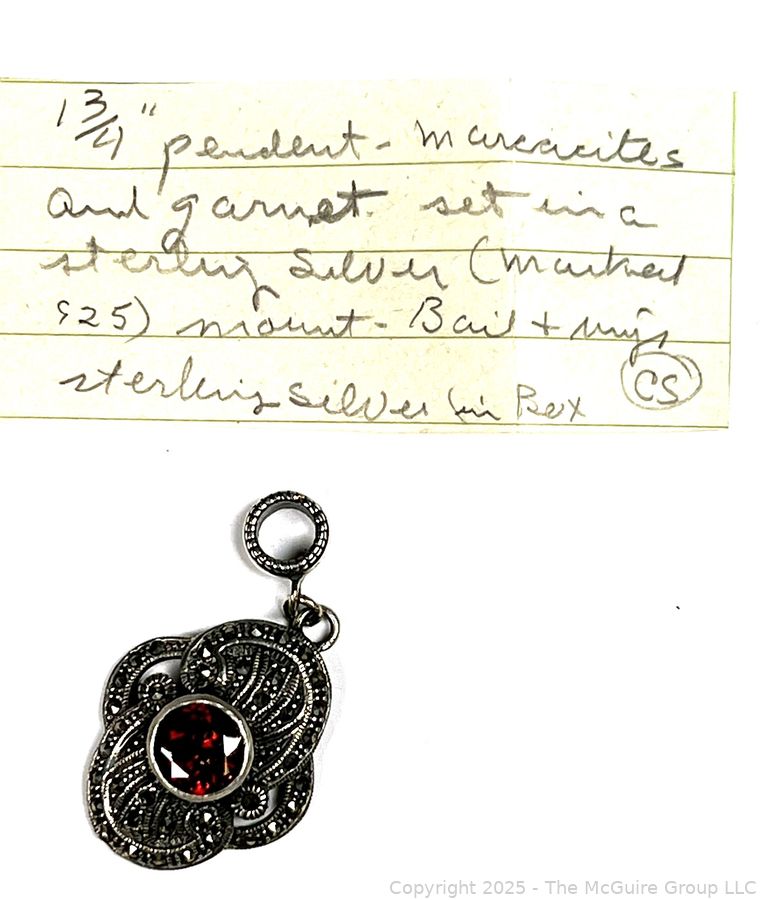 1 3/4" pendent - marcacites
and garnet. set in a
sterling silver (marked
925) mount - Bail + rings
sterling silver (in Box
CS
Copyright 2025 - The McGuire Group LLC